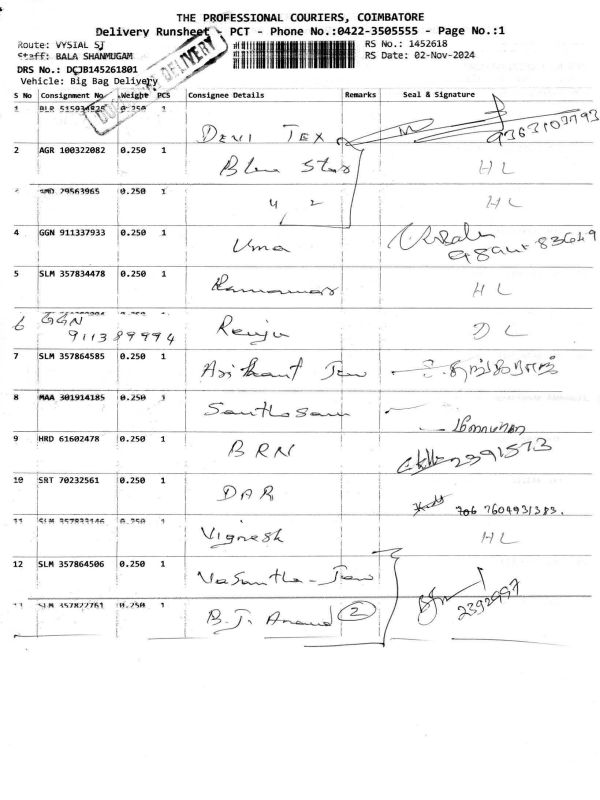 THE PROFESSIONAL COURIERS, COIMBATORE
Delivery Runsheet - PCT - Phone No.:0422-3505555 - Page No.:1
Route: VYSIAL SJ RS No.: 1452618
Staff: BALA SHANMUGAM RS Date: 02-Nov-2024
DRS No.: DCJB145261801
Vehicle: Big Bag Delivery
DELIVERY
S No Consignment No Weight PCS Consignee Details Remarks Seal & Signature
1 BLR 515934825 0.250 1 DEVI TEX 9363103793
2 AGR 100322082 0.250 1 Blue Star HL
SMD 79563965 0.250 1 HL
4 GGN 911337933 0.250 1 Uma
5 SLM 357834478 0.250 1 HL
6 GGN 911389994 Renju DL
7 SLM 357864585 0.250 1 Arihant Jew
8 MAA 301914185 0.250 1
9 HRD 61602478 0.250 1 BRN 2391573
10 SRT 70232561 0.250 1 DAR 7604931383.
11 SLM 357833146 0.250 1 Vignesh HL
12 SLM 357864506 0.250 1 Vasantha - Jew
13 SLM 357822761 0.250 1 B.J. Anand 2 2392997